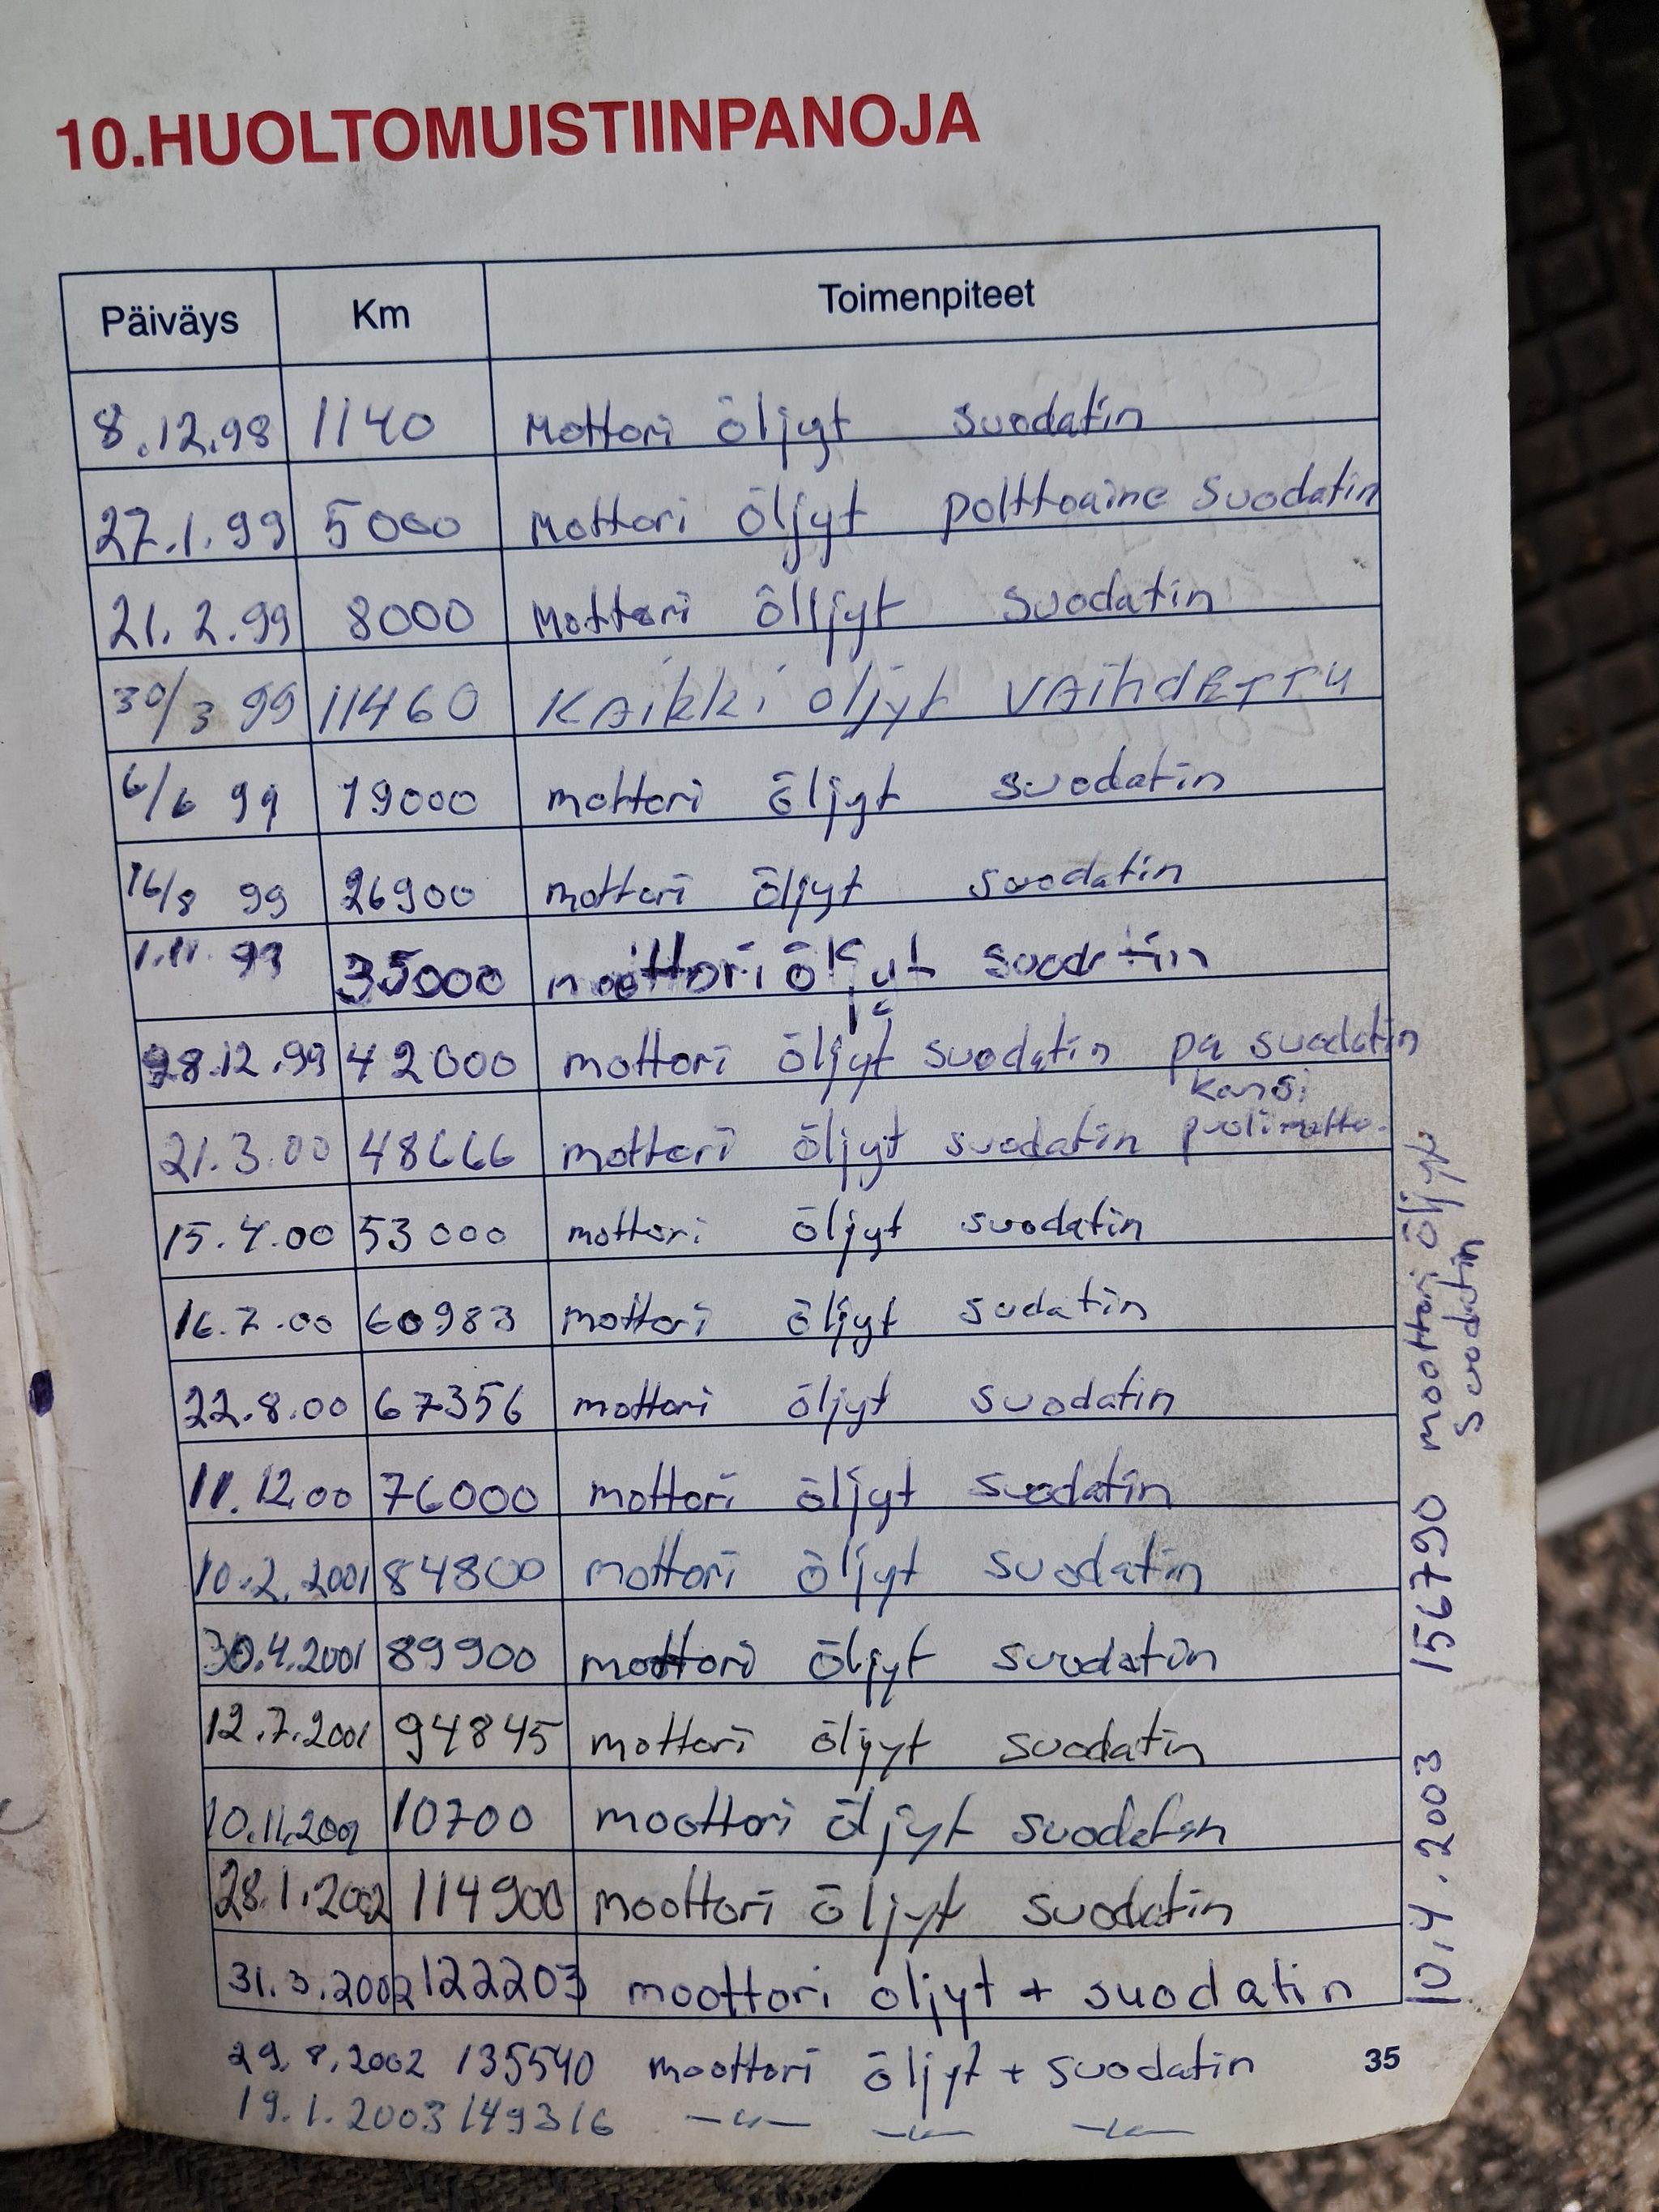 10.HUOLTOMUISTIINPANOJA
Päiväys Km Toimenpiteet
8.12.98 1140 Mottori öljyt suodatin
27.1.99 5000 Mottori öljyt polttoaine suodatin
21.2.99 8000 Mottori ölljyt suodatin
30/3 99 11460 KAikki öljyt VAihdETTU
6/6 99 19000 mottori öljyt suodatin
16/8 99 26900 mottori öljyt suodatin
1.11.99 35000 moottori öljyt suodatin
28.12.99 42000 mottori öljyt suodatin pa suodatin
kansi
21.3.00 48666 mottori öljyt suodatin puolimatto.
15.4.00 53000 mottori öljyt suodatin
16.7.00 60983 mottori öljyt sudatin
22.8.00 67356 mottori öljyt suodatin
11.12.00 76000 mottori öljyt suodatin
10.2.2001 84800 mottori öljyt suodatin
30.4.2001 89900 mottori öljyt suodatin
12.7.2001 94845 mottori öljyt suodatin
10.11.2001 10700 moottori öljyt suodatin
28.1.2002 114900 moottori öljyt suodatin
31.3.2002 122203 moottori öljyt + suodatin
29.8.2002 135540 moottori öljyt + suodatin
19.1.2003 149316 —"— —"— —"—
35
10.4.2003 156790 moottori öljyt
suodatin